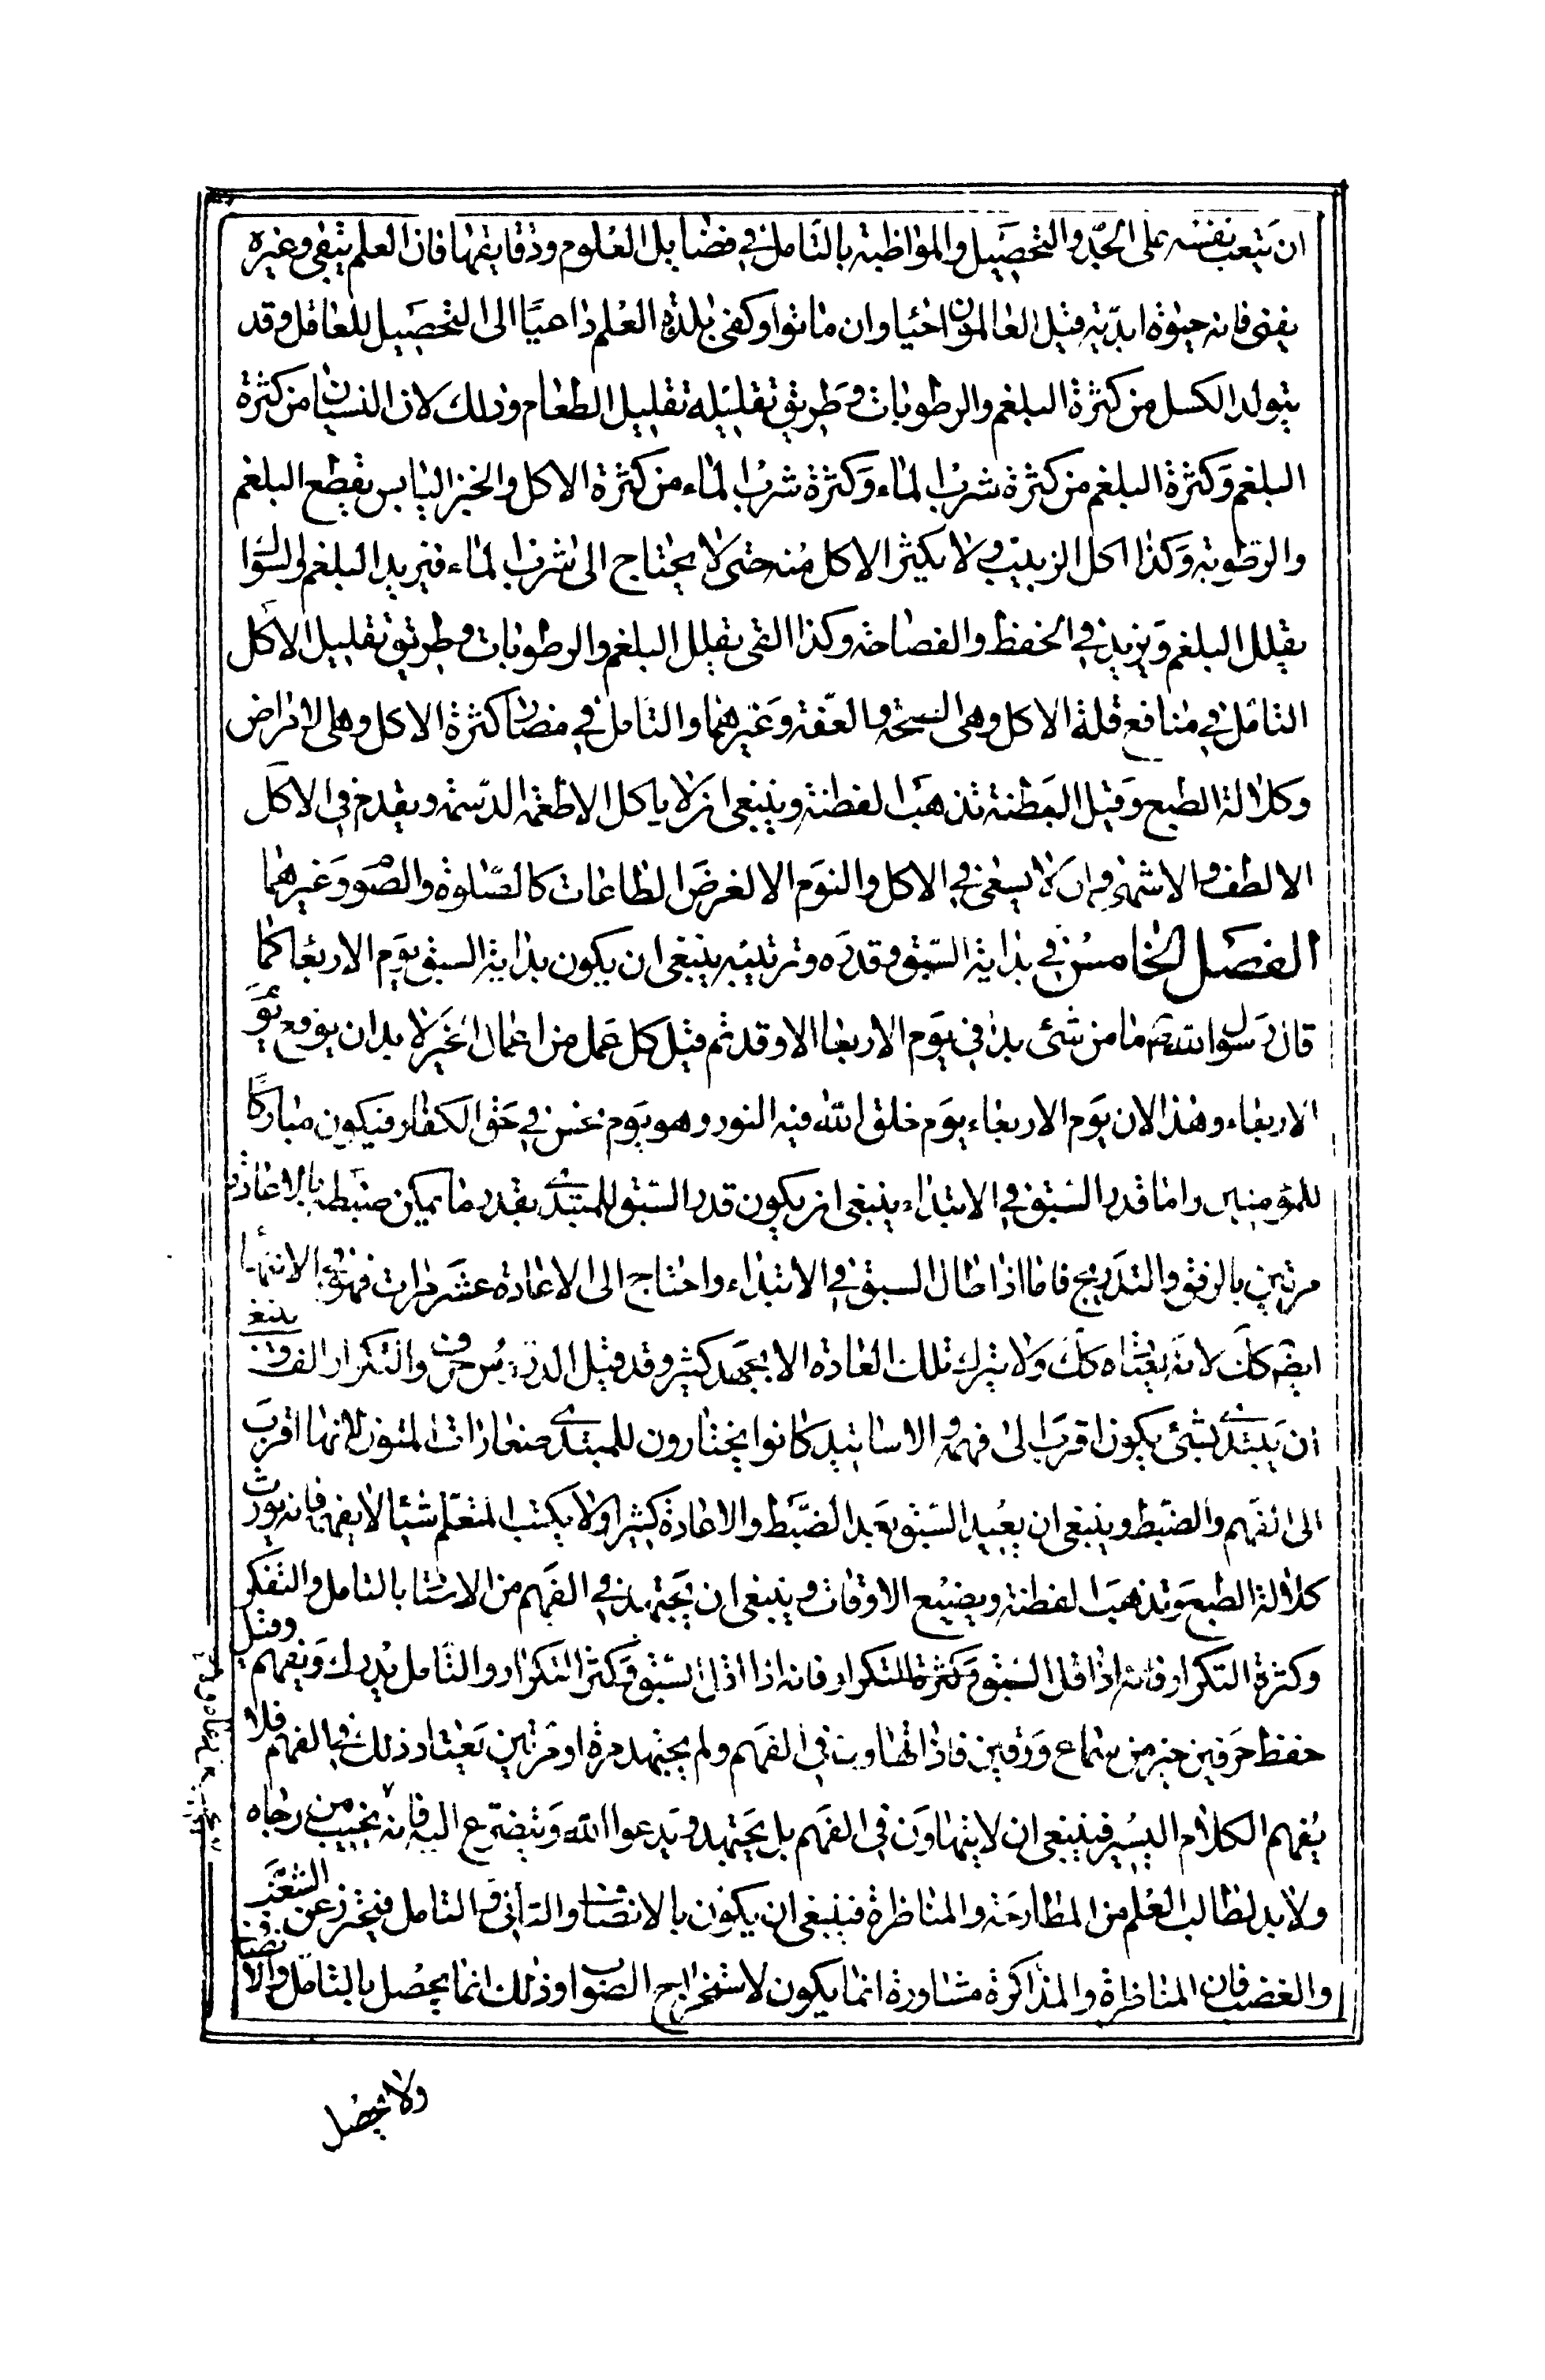 ان يتعب نفسه على الجدّ والتحصيل والمواظبة بالتأمل في فضايل العلوم ودقايقها فان العلم يبقى وغيره
يفنى فانه حيوة ابدّية قيل العالمون احياء وان ماتوا وكفى بلذة العلم داعيًا الى التحصيل للعاقل وقد
يتولد الكسل من كثرة البلغم والرطوبات وطريق تقليله تقليل الطعام وذلك لان النسيان من كثرة
البلغم وكثرة البلغم من كثرة شرب الماء وكثرة شرب الماء من كثرة الاكل والخبز اليابس يقطع البلغم
والرطوبة وكذا اكل الزبيب ولا يكثر الاكل منه حتى لا يحتاج الى شرب الماء فيزيد البلغم والسوا
يقلل البلغم ويزيد في الحفظ والفصاحة وكذا القى يقلل البلغم والرطوبات وطريق تقليل الاكل
التامل في منافع قلة الاكل وهى الصحة والعفّة وغيرهما والتامل في مضار كثرة الاكل وهى الامراض
وكلالة الطبع وقيل البطنة تذهب الفطنة وينبغى ان لا ياكل الاطعمه الدسمة ويقدم في الاكل
الالطف والاشهى وان لا يسعى في الاكل والنوم الا لغرض الطاعات كالصّلوة والصّوم وغيرهما
الفصل الخامس في بداية السّبق وقدره وترتيبه ينبغى ان يكون بداية السبق يوم الاربعا كما
قال رسول الله ص ما من شئ بدا في يوم الاربعا الا وقد تم قيل كل عمل من اعمال الخير لا بد ان يوقع يوم
الاربعاء وهذا لان يوم الاربعاء يوم خلق الله فيه النور وهو يوم نحس في حق الكفار فيكون مباركًا
للمؤمنين واما قدر السّبق في الابتداء ينبغى ان يكون قدر السّبق للمبتدى بقدر ما يمكن ضبطه بالاعادة
مرتين بالرفق والتدريج فاما اذا طال السبق في الابتداء واحتاج الى الاعادة عشر مرات فهو في الانتهاء
ايضا كذلك لانه يعتاد كذلك ولا يترك تلك العادة الا بجهد كثير وقد قيل الدرس حرف والتكرار الف وينبغى
ان يبتدى بشئ يكون اقرب الى فهمه والاساتيد كانوا يختارون للمبتدى صغارات المتون لانها اقرب
الى الفهم والضبط وينبغى ان يعيد السّبق بعد الضّبط والاعادة كثيرا ولا يكتب المتعلّم شيئا لا يفهم فانه يورث
كلالة الطبع وتذهب الفطنة ويضيع الاوقات وينبغى ان يجتهد في الفهم من الاستا بالتامل والتفكر
وكثرة التكرار فانه اذا قل السّبق وكثرة التكرار فانه اذا قل السّبق وكثر التكرار والتامل يدرك ويفهم وقيل
حفظ حرفين خير من سماع ورقين فاذا تهاون في الفهم ولم يجتهد مرة او مرتين يعتاد ذلك في الفهم فلا
يفهم الكلام اليسير فينبغى ان لا يتهاون في الفهم بل يجتهد ويدعوا الله ويتضرع اليه فانه يجيب من رجاه
ولا بد لطالب العلم من المطارحة والمناظرة فينبغى ان يكون بالانصاف والتأنى والتامل فيحترز عن الشغب
والغضب فان المناظرة والمذاكرة مشاورة انما يكون لاستخراج الصواب وذلك انما يحصل بالتأمل والانصاف
ولا يحصل